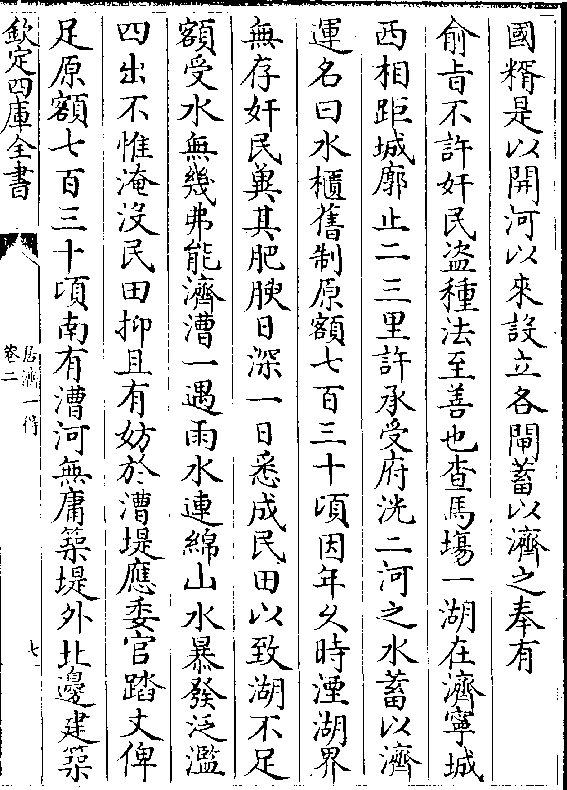 國糈是以開河以來設立各閘蓄以濟之奉有
俞旨不許奸民盗種法至善也查馬塲一湖在濟寧城
西相距城廓止二三里許承受府洸二河之水蓄以濟
運名曰水櫃舊制原額七百三十頃因年久時湮湖界
無存奸民冀其肥腴日深一日悉成民田以致湖不足
額受水無幾弗能濟漕一遇雨水連綿山水暴發泛濫
四出不惟淹沒民田抑且有妨於漕堤應委官踏丈俾
足原額七百三十頃南有漕河無庸築堤外北邊建築
欽定四庫全書
居濟一得
卷二
七